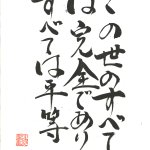 この世のすべて
は完全であり
すべては平等